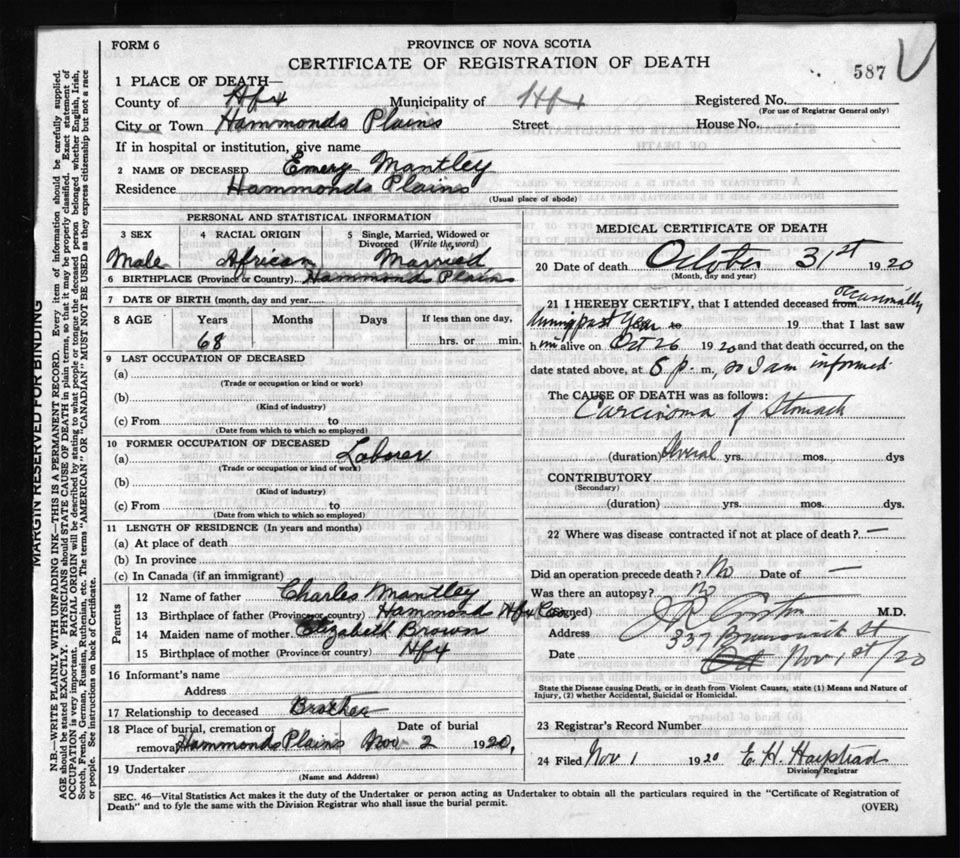 FORM 6
PROVINCE OF NOVA SCOTIA
CERTIFICATE OF REGISTRATION OF DEATH
587
1 PLACE OF DEATH—
County of Hfx Municipality of Hfx Registered No.
(For use of Registrar General only)
City or Town Hammonds Plains Street House No.
If in hospital or institution, give name
2 NAME OF DECEASED Emery Mantley
Residence Hammonds Plains
(Usual place of abode)
PERSONAL AND STATISTICAL INFORMATION
3 SEX 4 RACIAL ORIGIN 5 Single, Married, Widowed or Divorced (Write the word)
Male African Married
6 BIRTHPLACE (Province or Country) Hammonds Plains
7 DATE OF BIRTH (month, day and year)
8 AGE Years Months Days If less than one day,
68 hrs. or min.
9 LAST OCCUPATION OF DECEASED
(a)
(Trade or occupation or kind or work)
(b)
(Kind of industry)
(c) From to
(Date from which to which so employed)
10 FORMER OCCUPATION OF DECEASED
(a) Laborer
(Trade or occupation or kind of work)
(b)
(Kind of industry)
(c) From to
(Date from which to which so employed)
11 LENGTH OF RESIDENCE (In years and months)
(a) At place of death
(b) In province
(c) In Canada (if an immigrant)
Parents
12 Name of father Charles Mantley
13 Birthplace of father (Province or country) Hammonds Hfx Co
14 Maiden name of mother Elizabeth Brown
15 Birthplace of mother (Province or country) Hfx
16 Informant's name
Address
17 Relationship to deceased Brother
18 Place of burial, cremation or removal Hammonds Plains Date of burial Nov 2 1920,
19 Undertaker
(Name and Address)
MEDICAL CERTIFICATE OF DEATH
20 Date of death October 31st 1920
(Month, day and year)
21 I HEREBY CERTIFY, that I attended deceased from occasionally
during past year to 19 that I last saw
him alive on Oct 26 1920 and that death occurred, on the
date stated above, at 5 p. m, so I am informed
The CAUSE OF DEATH was as follows:
Carcinoma of Stomach
(duration) Several yrs. mos. dys
CONTRIBUTORY
(Secondary)
(duration) yrs. mos. dys.
22 Where was disease contracted if not at place of death? —
Did an operation precede death? No Date of —
Was there an autopsy? No
(Signed) J R M.D.
Address 337 Brunswick St
Date Oct Nov 1st/20
State the Disease causing Death, or in death from Violent Causes, state (1) Means and Nature of Injury, (2) whether Accidental, Suicidal or Homicidal.
23 Registrar's Record Number
24 Filed Nov 1 1920 E. H.
Division Registrar
SEC. 46—Vital Statistics Act makes it the duty of the Undertaker or person acting as Undertaker to obtain all the particulars required in the "Certificate of Registration of
Death" and to fyle the same with the Division Registrar who shall issue the burial permit.
(OVER)
MARGIN RESERVED FOR BINDING
N.B.—WRITE PLAINLY WITH UNFADING INK—THIS IS A PERMANENT RECORD. Every item of information should be carefully supplied.
AGE should be stated EXACTLY. PHYSICIANS should STATE CAUSE OF DEATH in plain terms, so that it may be properly classified. Exact statement of
OCCUPATION is very important. RACIAL ORIGIN will be described by stating to what people or tongue the deceased person belonged whether English, Irish,
Scotch, French, German, Russian, Ruthenian, etc. The terms "AMERICAN" OR "CANADIAN" MUST NOT BE USED as they express citizenship but not a race
or people. See instructions on back of Certificate.